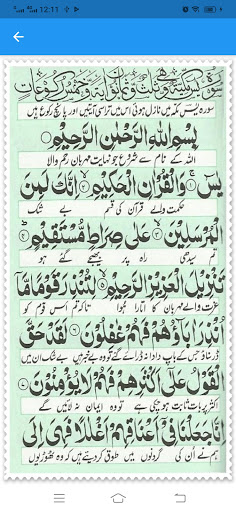 12:11
سورہ یٰسٓ مکہ میں نازل ہوئی اس میں تراسی آیتیں اور پانچ رکوع ہیں
بِسْمِ اللّٰهِ الرَّحْمٰنِ الرَّحِيْمِ
اللہ کے نام سے شروع جو نہایت مہربان رحم والا
يٰسٓ ۚ وَالْقُرْاٰنِ الْحَكِيْمِ ۙ اِنَّكَ لَمِنَ
حکمت والے قرآن کی قسم بے شک تم
الْمُرْسَلِيْنَ ۙ عَلٰى صِرَاطٍ مُّسْتَقِيْمٍ ۭ
سیدھی راہ پر بھیجے گئے ہو
تَنْزِيْلَ الْعَزِيْزِ الرَّحِيْمِ ۙ لِتُنْذِرَ قَوْمًا مَّآ
عزت والے مہربان کا اتارا ہوا تاکہ تم اس قوم کو
اُنْذِرَ اٰبَآؤُهُمْ فَهُمْ غٰفِلُوْنَ ۶ لَقَدْ حَقَّ
ڈر سناؤ جس کے باپ دادا نہ ڈرائے گئے تو وہ بے خبر ہیں بے شک ان میں
الْقَوْلُ عَلٰٓى اَكْثَرِهِمْ فَهُمْ لَا يُؤْمِنُوْنَ ۷
اکثر پر بات ثابت ہو چکی ہے تو وہ ایمان نہ لائیں گے
اِنَّا جَعَلْنَا فِيْٓ اَعْنَاقِهِمْ اَغْلٰلًا فَهِىَ اِلَى
ہم نے ان کی گردنوں میں طوق کر دیئے ہیں کہ وہ ٹھوڑیوں